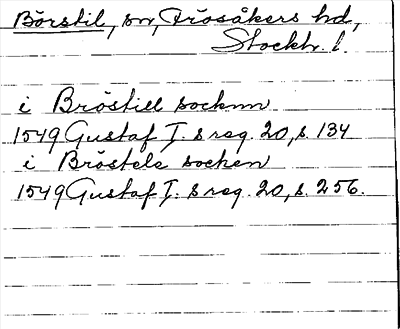 Börstil, sn, Frösåkers hd,
Stockh. l.
i Bröstill socknn
1549 Gustaf I:s reg. 20, s. 134
i Bröstels socken
1549 Gustaf I:s reg. 20, s. 256.